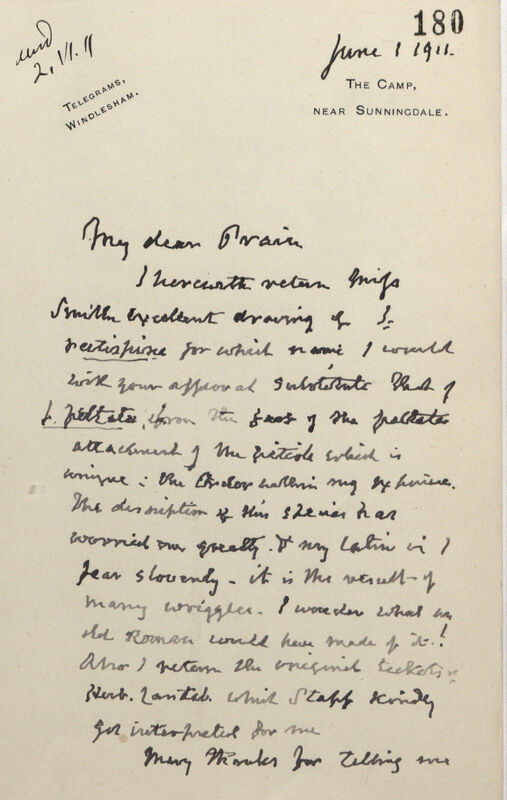 180
and
2.VI.11
June 1 1911.
TELEGRAMS,
WINDLESHAM.
THE CAMP,
NEAR SUNNINGDALE.
My dear Prain
I herewith return Miss
Smiths excellent drawing of I.
rectissima for which name I would
with your approval substitute that of
I. peltata, from the fact of the peltate
attachment of the petiole which is
unique in the Order within my experience.
The description of this species has
worried me greatly. & my latin is I
fear slovenly - it is the result of
many wriggles. I wonder what an
old Roman would have made of it!
Also I return the original tickets of
Herb. which Stapf kindly
got interpreted for me
Many thanks for telling me